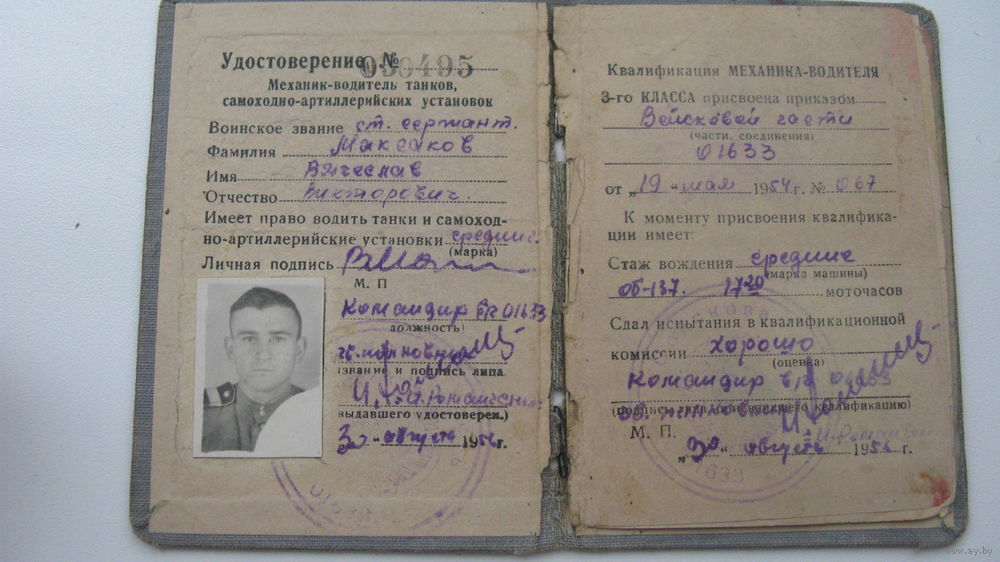 Удостоверение № 050495
Механик-водитель танков,
самоходно-артиллерийских установок
Воинское звание ст. сержант.
Фамилия Максаков
Имя Вячеслав
Отчество Викторович.
Имеет право водить танки и самоход-
но-артиллерийские установки средние.
(марка)
Личная подпись
М. П
Командир 01633
должность)
(звание и подпись лица
выдавшего удостоверен.)
августа
Квалификация МЕХАНИКА-ВОДИТЕЛЯ
3-го КЛАССА присвоена приказом
Войсковой части
(части, соединения)
01633
от „19" мая 1954 г. № 067
К моменту присвоения квалифика-
ции имеет:
Стаж вождения средние
(марка машины)
об-137. 17-20 моточасов
Сдал испытания в квалификационной
комиссии хорошо
(оценка)
Командир в/ч
М. П.
„30" августа
633
www.ay.by